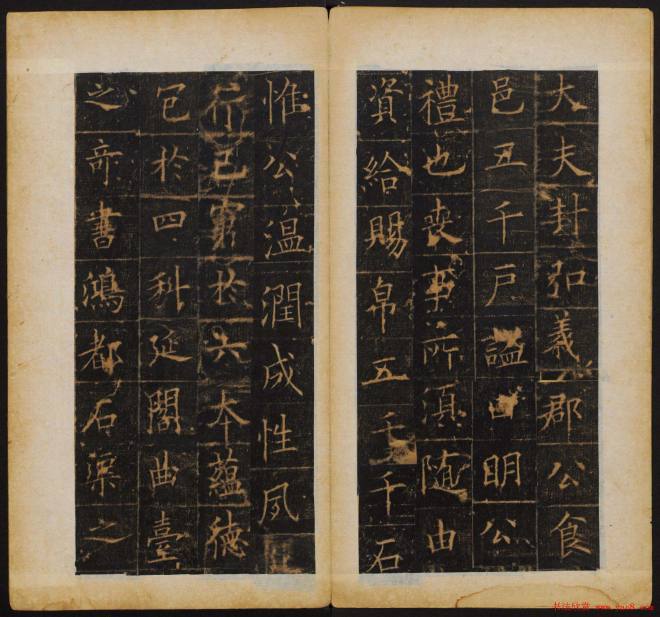 大夫封弘義郡公食
邑五千戶謚曰明公
禮也喪事所湏隨由
資給賜帛五千千石
惟公温潤成性夙
行己窮於六本藴德
包於四科延閣曲臺
之奇書鴻都石渠之
书法欣赏 www.yac8.com